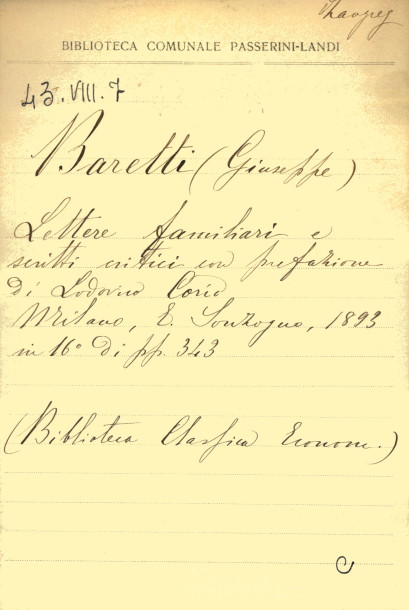 BIBLIOTECA COMUNALE PASSERINI-LANDI
43.VIII.7
Baretti (Giuseppe)
Lettere familiari e
scritti critici con prefazione
di Lodovico Corio
Milano, E. Sonzogno, 1893
in 16° di pp. 343
(Biblioteca Classica Econom.)
C